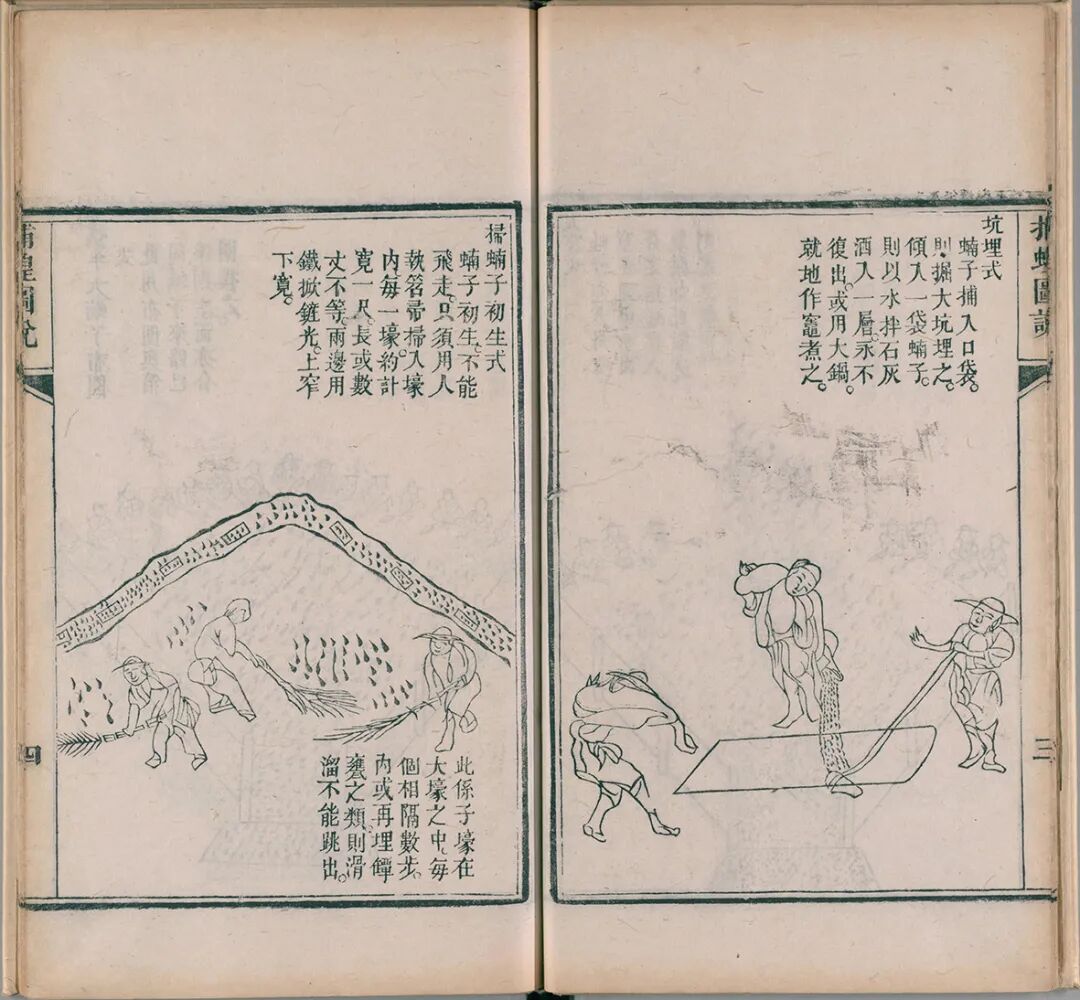 捕蝗圖說
三
坑埋式
蝻子捕入口袋。
則掘大坑埋之。
傾入一袋蝻子。
則以水拌石灰
洒入一層。永不
復出。或用大鍋。
就地作竈煮之。
掃蝻子初生式
蝻子初生。不能
飛走。只須用人
執笤帚掃入壕
內。每一壕。約計
寬一尺。長或數
丈不等。兩邊用
鐵掀鏟光。上窄
下寬。
此係子壕在
大壕之中。每
個相隔數步。
內或再埋罈
甕之類。則滑
溜不能跳出。
捕蝗圖說
四